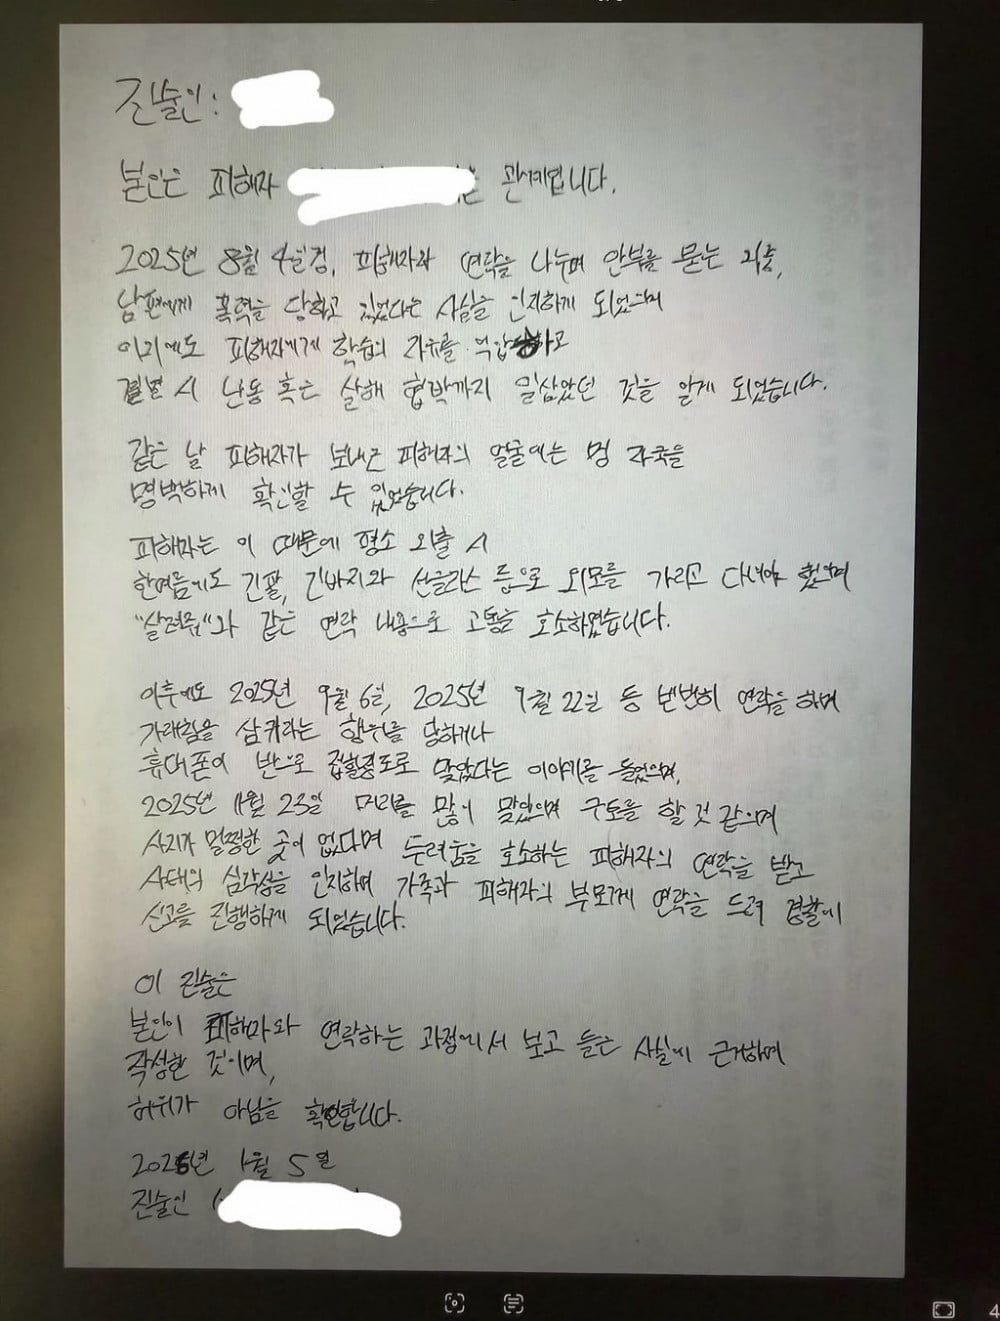 진술인:
본인은 피해자 관계입니다.
2025년 8월 4일경, 피해자와 연락을 나누며 안부를 묻는 와중,
남편에게 폭력을 당하고 있었다는 사실을 인지하게 되었으며
이외에도 피해자에게 학습의 자유를 억압하고
결별 시 난동 혹은 살해 협박까지 일삼았던 것을 알게 되었습니다.
같은 날 피해자가 보내온 피해자의 얼굴에는 멍 자국을
명백하게 확인할 수 있었습니다.
피해자는 이 때문에 평소 외출 시
한여름에도 긴팔, 긴바지와 선글라스 등으로 외모를 가리고 다녀야 했으며
"살려줘"와 같은 연락 내용으로 고통을 호소하였습니다.
이후에도 2025년 9월 6일, 2025년 9월 22일 등 빈번히 연락을 하며
가래침을 삼키라는 행위를 당하거나
휴대폰이 반으로 접힐정도로 맞았다는 이야기를 들었으며,
2025년 11월 23일 머리를 많이 맞았으며 구토를 할 것 같으며
사지가 멀쩡한 곳이 없다며 두려움을 호소하는 피해자의 연락을 받고
사태의 심각성을 인지하며 가족과 피해자의 부모께 연락을 드려 경찰에
신고를 진행하게 되었습니다.
이 진술은
본인이 피해자와 연락하는 과정에서 보고 들은 사실에 근거하며
작성한 것이며,
허위가 아님을 확인합니다.
2026년 1월 5일
진술인 (
4